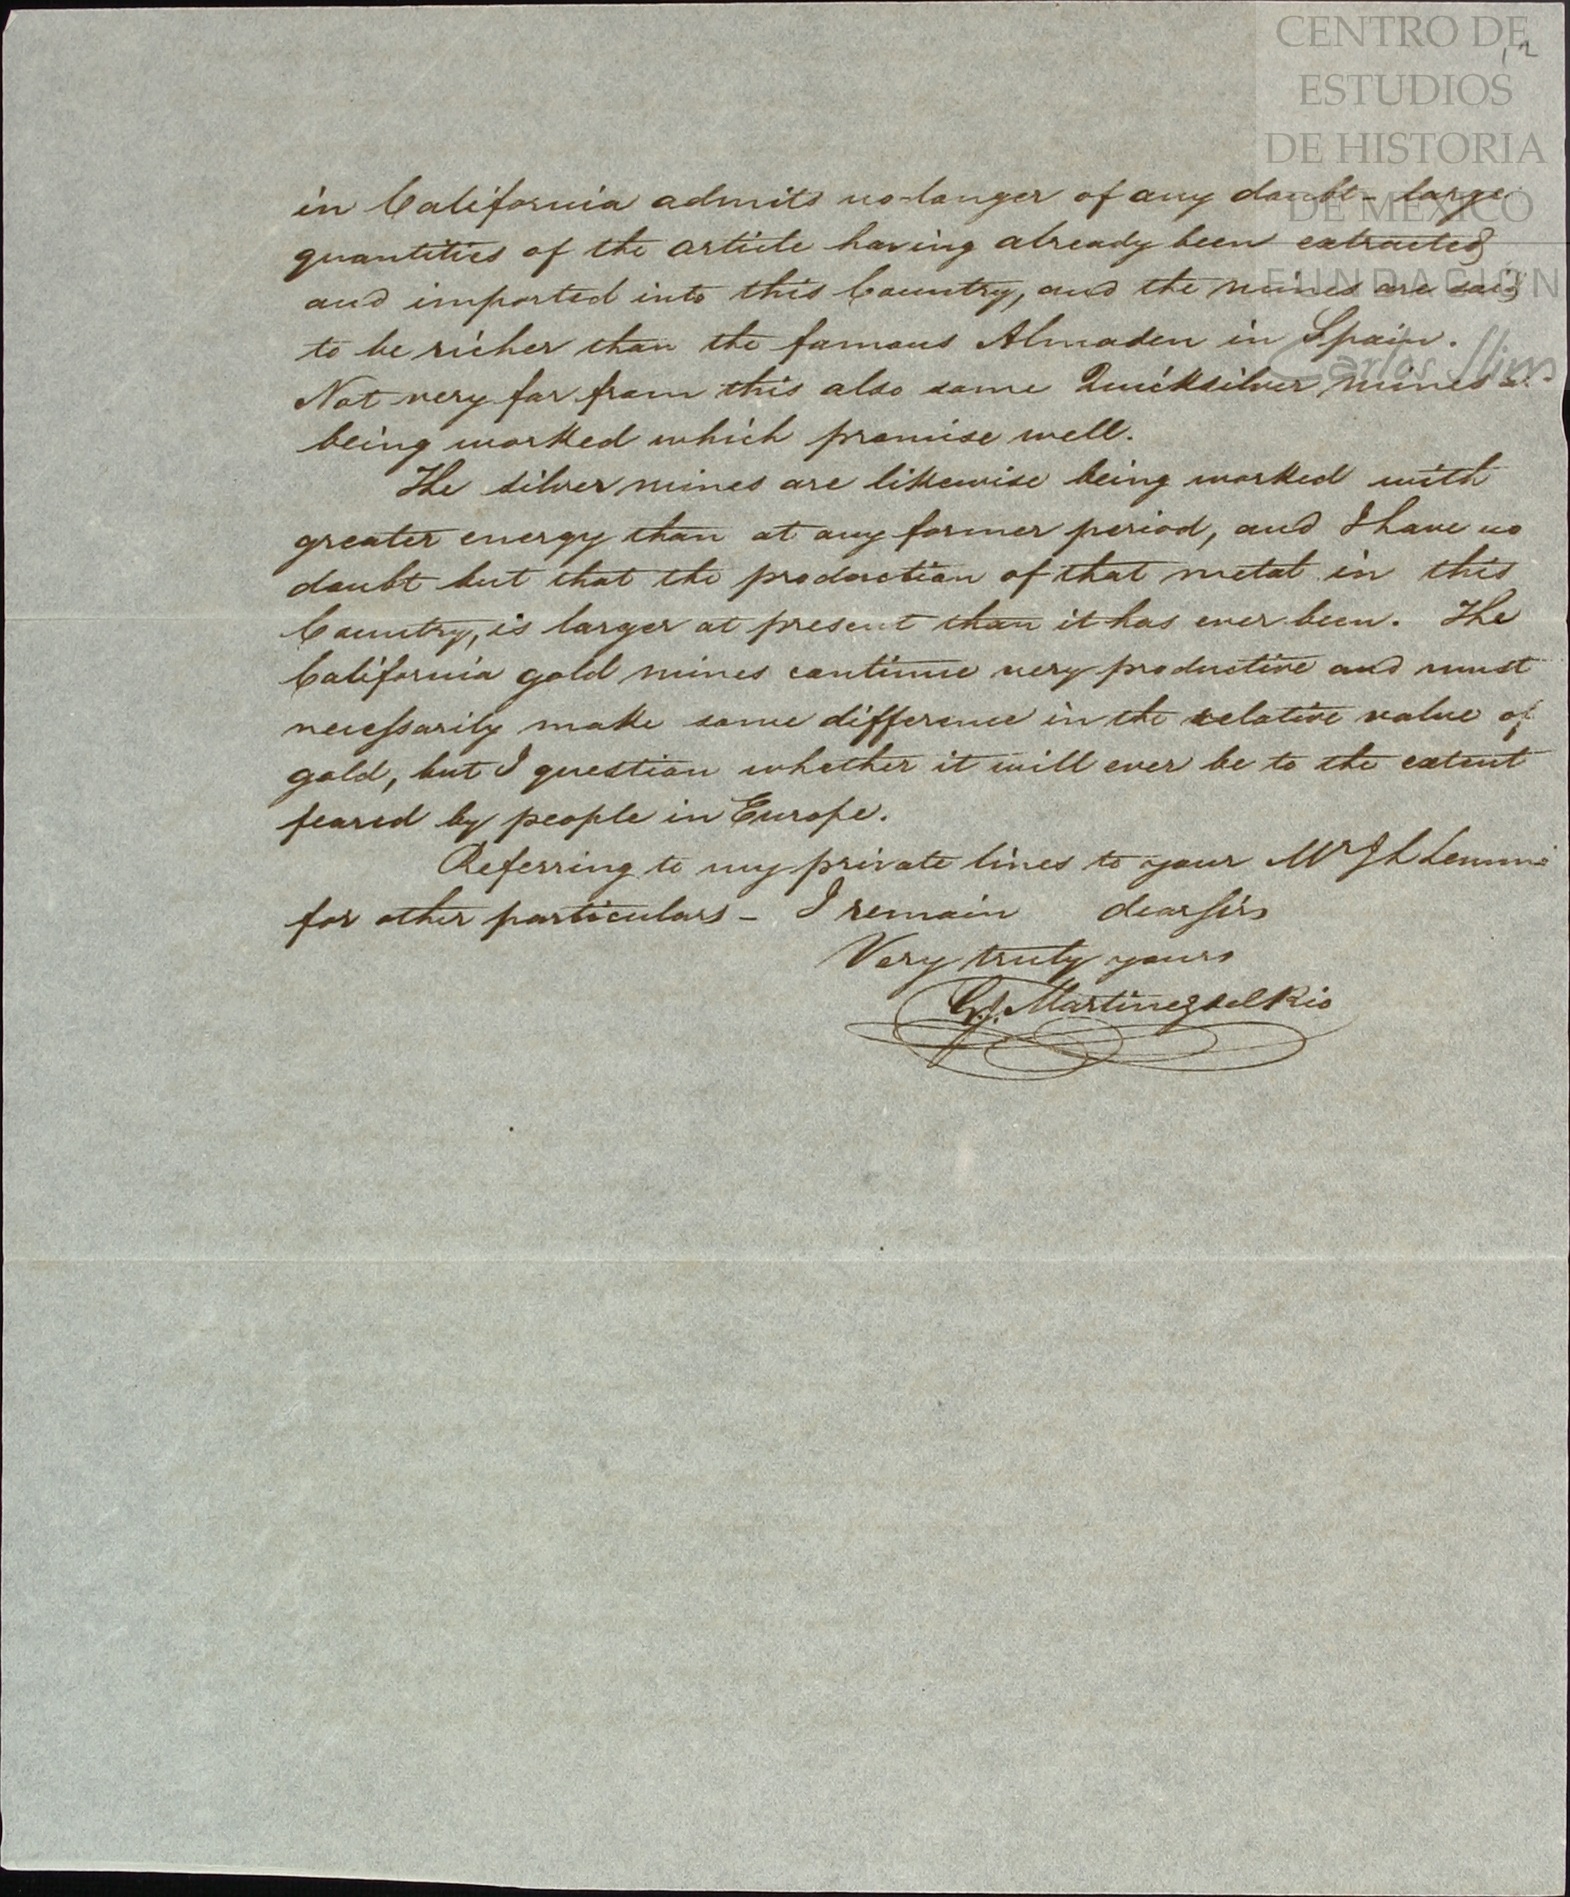 CENTRO DE
ESTUDIOS
DE HISTORIA
DE MEXICO
FUNDACIÓN
Carlos Slim
in California admits no longer of any doubt - large
quantities of the article having already been extracted
and imported into this Country, and the mines are said
to be richer than the famous Almaden in Spain.
Not very far from this also some Quicksilver mines
being worked which promise well.
The silver mines are likewise being worked with
greater energy than at any former period, and I have no
doubt but that the production of that metal in this
Country, is larger at present than it has ever been. The
California gold mines continue very productive and must
necessarily make some difference in the relative value of
gold, but I question whether it will ever be to the extent
feared by people in Europe.
Referring to my private lines to your Mr J L Lemmé
for other particulars - I remain dear Sirs
Very truly yours
G. J. Martinez del Rio